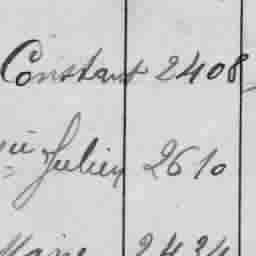 Constant 2408
Julien 2610
2434